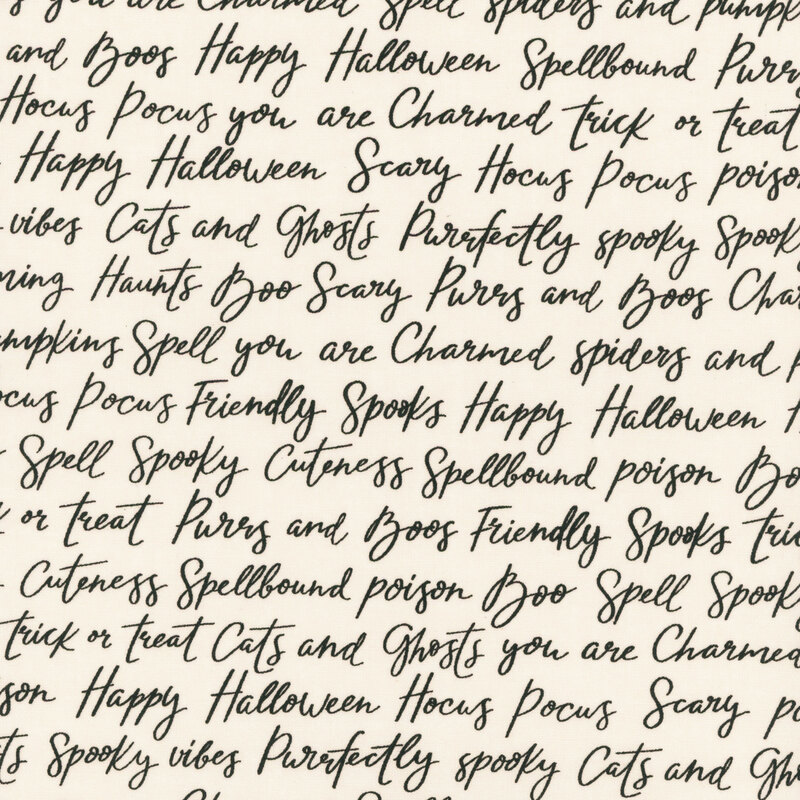 you are Charmed Spell spiders and pumpk
and Boos Happy Halloween Spellbound Purrs
Hocus Pocus you are Charmed trick or treat
Happy Halloween Scary Hocus Pocus poiso
vibes Cats and Ghosts Purrfectly spooky Spook
ming Haunts Boo Scary Purrs and Boos Char
umpkins Spell you are Charmed spiders and p
ocus Pocus Friendly Spooks Happy Halloween H
Spell Spooky Cuteness Spellbound poison Bo
k or treat Purrs and Boos Friendly Spooks tric
Cuteness Spellbound poison Boo Spell Spook
trick or treat Cats and Ghosts you are Charmed
ison Happy Halloween Hocus Pocus Scary po
ts Spooky vibes Purrfectly spooky Cats and Gho